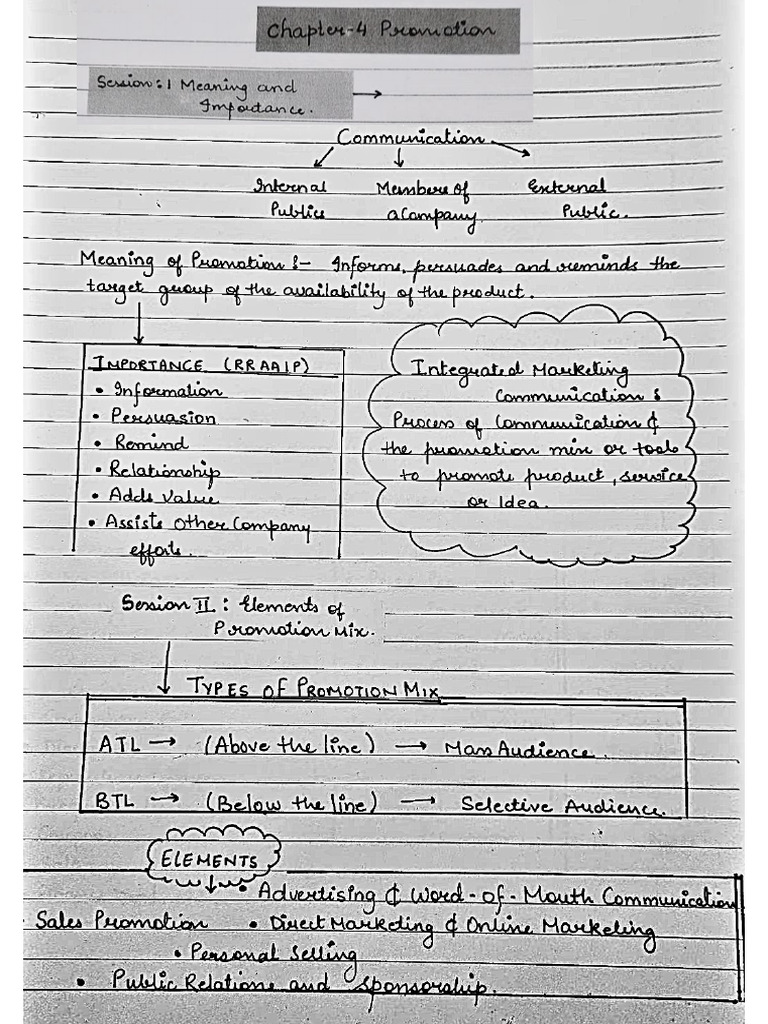 Chapter-4 Promotion
Session: 1 Meaning and
Importance.
Communication
Internal Members of External
Publics a Company Public.
Meaning of Promotion :- Informs, persuades and reminds the
target group of the availability of the product.
IMPORTANCE (RRAAIP)
• Information
• Persuasion
• Remind
• Relationship
• Adds Value
• Assists Other Company
efforts.
Integrated Marketing
Communication :
Process of Communication &
the promotion mix or tools
to promote product, service
or Idea.
Session II : Elements of
Promotion Mix.
TYPES OF PROMOTION MIX
ATL → (Above the line) → Mass Audience.
BTL → (Below the line) → Selective Audience.
ELEMENTS
• Advertising & Word-of-Mouth Communication
· Sales Promotion • Direct Marketing & Online Marketing
• Personal Selling
• Public Relations and Sponsorship.